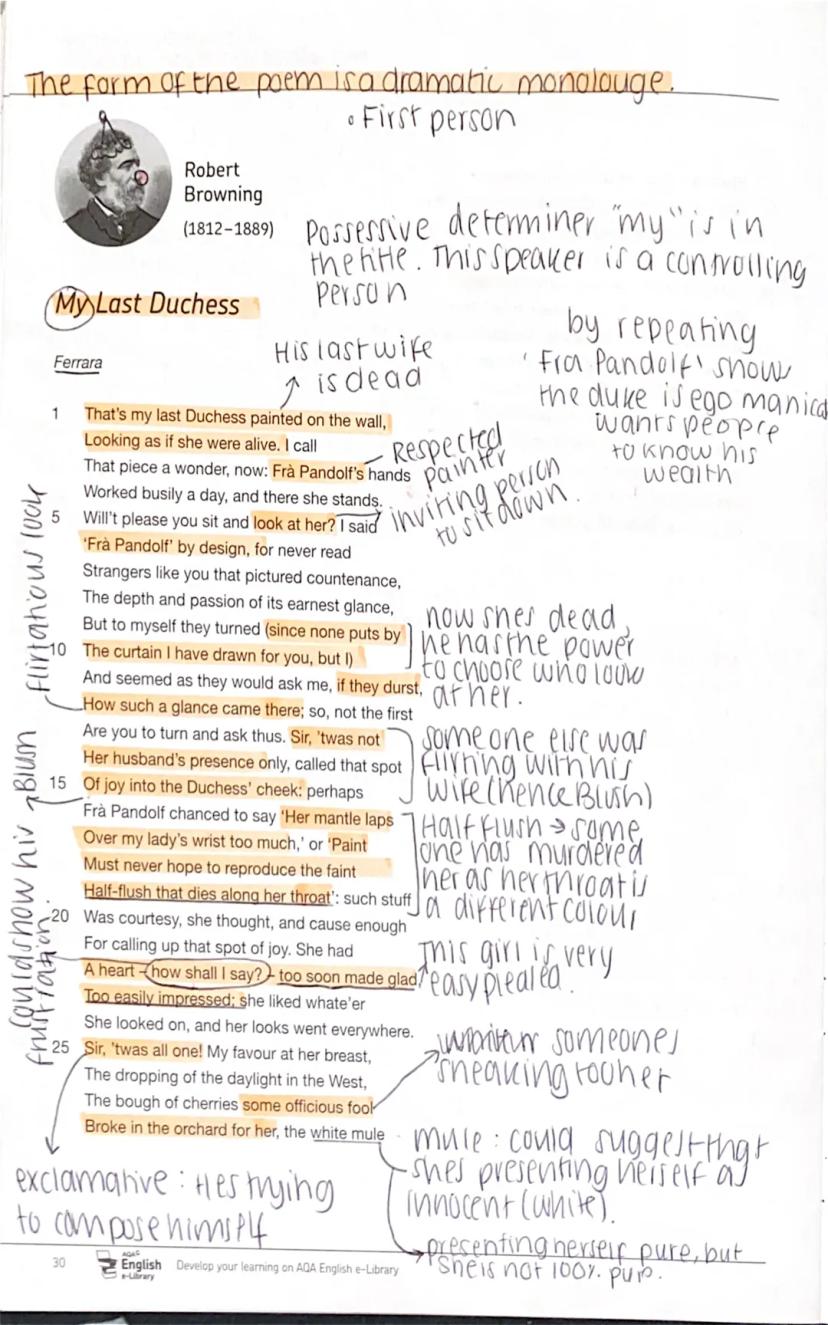 The form of the poem is a dramatic monolouge.
• First person
Robert
Browning
(1812–1889)
Possessive determiner "my" is in
the title. This speaker is a controlling
person
My Last Duchess
Ferrara
His last wife
is dead
by repeating
'Fra Pandolf' show
the duke is ego manical
wants people
to know his
wealth
1 That's my last Duchess painted on the wall,
Looking as if she were alive. I call
That piece a wonder, now: Frà Pandolf's hands
Respected
painter
Worked busily a day, and there she stands.
5 Will't please you sit and look at her? I said
inviting person
to sit down.
'Frà Pandolf' by design, for never read
Strangers like you that pictured countenance,
The depth and passion of its earnest glance,
But to myself they turned (since none puts by
10 The curtain I have drawn for you, but I)
now shes dead,
he has the power
to choose who look
at her.
And seemed as they would ask me, if they durst,
How such a glance came there; so, not the first
flirtatious look
Are you to turn and ask thus. Sir, 'twas not
Her husband's presence only, called that spot
15 Of joy into the Duchess' cheek: perhaps
someone else was
flirting with his
wife (hence Blush)
Blush
Frà Pandolf chanced to say 'Her mantle laps
Over my lady's wrist too much,' or 'Paint
Must never hope to reproduce the faint
Half-flush that dies along her throat': such stuff
Half flush → some
one has murdered
her as her throat is
a different colour
20 Was courtesy, she thought, and cause enough
For calling up that spot of joy. She had
A heart – how shall I say? – too soon made glad,
could show hiv
frustration.
This girl is very
easy plealed.
Too easily impressed; she liked whate'er
She looked on, and her looks went everywhere.
25 Sir, 'twas all one! My favour at her breast,
The dropping of the daylight in the West,
The bough of cherries some officious fool
someones
sneaking to her
Broke in the orchard for her, the white mule
mule: could suggest that
shes presenting herself as
innocent (white).
presenting herself pure, but
she is not 100% pure.
exclamative: Hes trying
to compose himself
30
AQA
English
e-Library
Develop your learning on AQA English e-Library